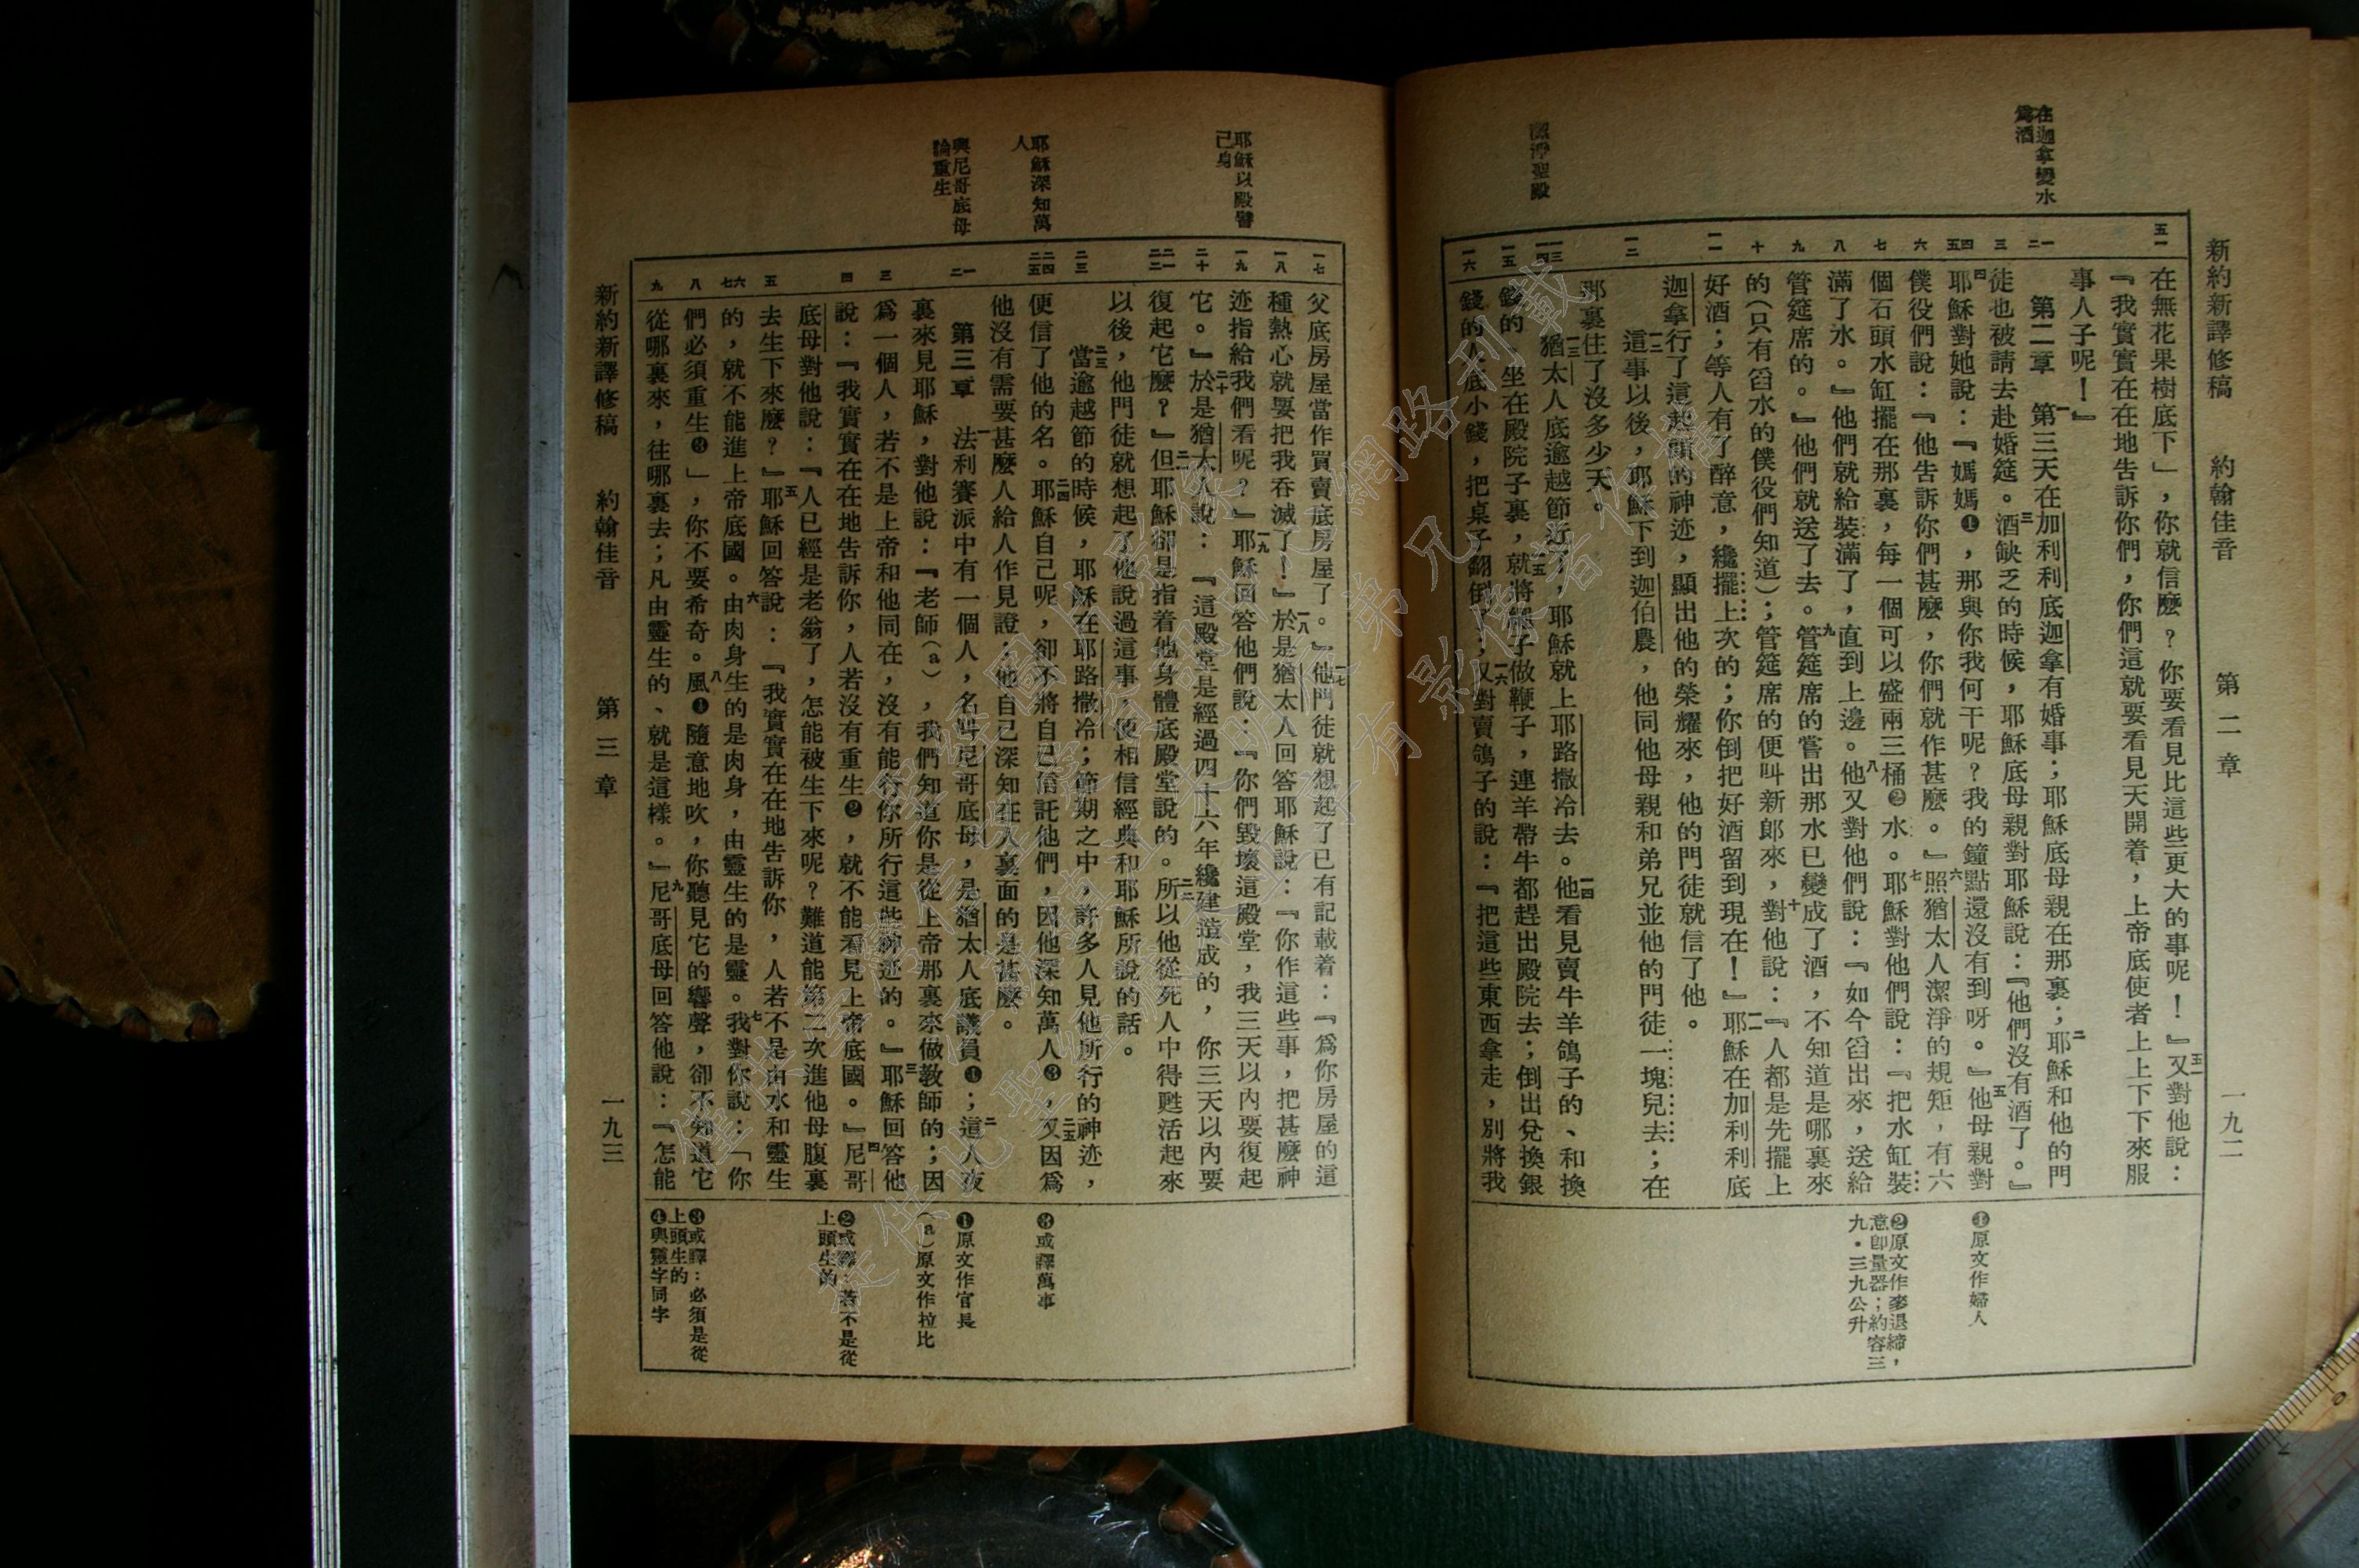 新約新譯修稿 約翰佳音 第二章 一九二
在迦拿變水
爲酒
潔淨聖殿
在無花果樹底下」，你就信麼？你要看見比這些更大的事呢！』五一又對他說：
『我實實在在地告訴你們，你們這就要看見天開着，上帝底使者上上下下來服
事人子呢！』
第二章 一第三天在加利利底迦拿有婚事；耶穌底母親在那裏；二耶穌和他的門
徒也被請去赴婚筵。三酒缺乏的時候，耶穌底母親對耶穌說：『他們沒有酒了。』
四耶穌對她說：『媽媽❶，那與你我何干呢？我的鐘點還沒有到呀。』五他母親對
僕役們說：『他告訴你們甚麼，你們就作甚麼。』六照猶太人潔淨的規矩，有六
個石頭水缸擺在那裏，每一個可以盛兩三桶❷水。七耶穌對他們說：『把水缸裝
滿了水。』他們就給裝滿了，直到上邊。八他又對他們說：『如今舀出來，送給
管筵席的。』他們就送了去。九管筵席的嘗出那水已變成了酒，不知道是哪裏來
的（只有舀水的僕役們知道）；管筵席的便叫新郎來，十對他說：『人都是先擺上
好酒；等人有了醉意，纔擺上次的；你倒把好酒留到現在！』一一耶穌在加利利底
迦拿行了這起頭的神迹，顯出他的榮耀來，他的門徒就信了他。
一二這事以後，耶穌下到迦伯農，他同他母親和弟兄並他的門徒一塊兒去；在
那裏住了沒多少天。
一三猶太人底逾越節近了，耶穌就上耶路撒冷去。一四他看見賣牛羊鴿子的、和換
錢的、坐在殿院子裏，一五就將繩子做鞭子，連羊帶牛都趕出殿院去；倒出兌換銀
錢的人底小錢，把桌子翻倒了；一六又對賣鴿子的說：『把這些東西拿走，別將我
❶原文作婦人
❷原文作麥退締，
意卽量器；約容三
九・三九公升
耶穌以殿譬
己身
耶穌深知萬
人
與尼哥底母
論重生
父底房屋當作買賣底房屋了。』一七他門徒就想起了已有記載着：『爲你房屋的這
種熱心就要把我吞滅了！』一八於是猶太人回答耶穌說：『你作這些事，把甚麼神
迹指給我們看呢？』一九耶穌回答他們說：『你們毀壞這殿堂，我三天以內要復起
它。』二十於是猶太人說：『這殿堂是經過四十六年纔建造成的，你三天以內要
復起它麼？』二一但耶穌卻是指着他身體底殿堂說的。二二所以他從死人中得甦活起來
以後，他門徒就想起了他說過這事，便相信經典和耶穌所說的話。
二三當逾越節的時候，耶穌在耶路撒冷；節期之中，許多人見他所行的神迹，
便信了他的名。二四耶穌自己呢，卻不將自己信託他們，因他深知萬人❸，二五又因爲
他沒有需要甚麼人給人作見證；他自己深知在人裏面的是甚麼。
第三章 一法利賽派中有一個人，名叫尼哥底母，是猶太人底議員❶；二這人夜
裏來見耶穌，對他說：『老師（a），我們知道你是從上帝那裏來做教師的；因
爲一個人，若不是上帝和他同在，沒有能行你所行這些神迹的。』三耶穌回答他
說：『我實實在在地告訴你，人若沒有重生❷，就不能看見上帝底國。』四尼哥
底母對他說：『人已經是老翁了，怎能被生下來呢？難道能第二次進他母腹裏
去生下來麼？』五耶穌回答說：『我實實在在地告訴你，人若不是由水和靈生
的，就不能進上帝底國。六由肉身生的是肉身，由靈生的是靈。七我對你說：「你
們必須重生❸」，你不要希奇。八風❹隨意地吹，你聽見它的響聲，卻不知道它
從哪裏來，往哪裏去；凡由靈生的、就是這樣。』九尼哥底母回答他說：『怎能
❸或譯萬事
❶原文作官長
（a）原文作拉比
❷或譯：若不是從
上頭生的
❸或譯：必須是從
上頭生的
❹與靈字同字
新約新譯修稿 約翰佳音 第三章 一九三